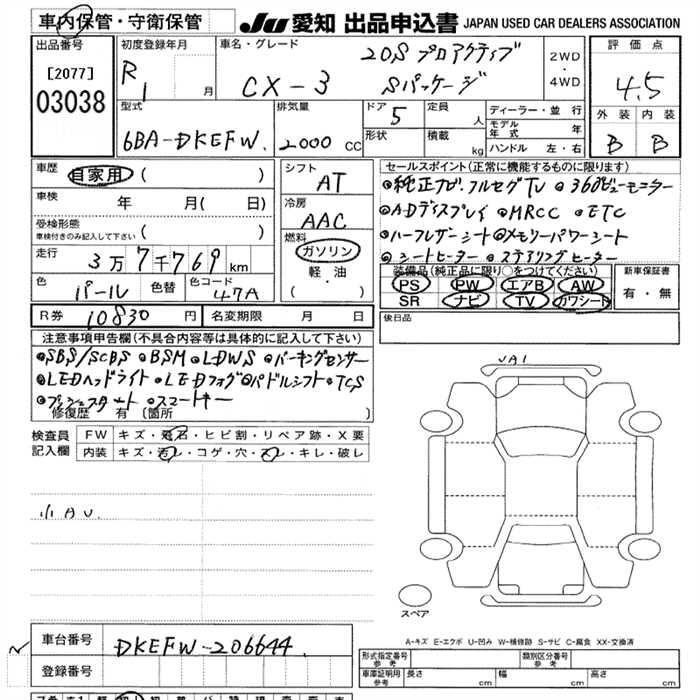 車内保管・守衛保管
JU 愛知 出品申込書 JAPAN USED CAR DEALERS ASSOCIATION
出品番号 初度登録年月 車名・グレード 評価点
[2077] R1 月 CX-3 20S プロアクティブ Sパッケージ 2WD・4WD 4.5
03038
型式 排気量 ドア 5 定員 人 ディーラー・並行 外装 内装
6BA-DKEFW. 2000 CC 形状 積載 kg モデル年式 年 B B
ハンドル 左・右
車歴 自家用 ( ) シフト AT セールスポイント(正常に機能するものに限ります)
車検 年 月( 日) 冷房 AAC ◎純正ナビ.フルセグTV ◎360°ビューモニター
◎ADディスプレイ ◎MRCC ◎ETC
受検形態 車検付きのみ記入して下さい ( ) 燃料 ◎ハーフレザーシート◎メモリーパワーシート
走行 3万7千769km ガソリン ◎シートヒーター ◎ステアリングヒーター
軽油 装備品(純正品に限り○をつけてください) 新車保証書
色 パール 色替 色コード 47A ・( ) PS PW エアB AW 有・無
SR ナビ TV カワシート
R券 10830円 名変期限 月 日 後日品
注意事項申告欄(不具合内容等は具体的に記入して下さい)
◎SBS/SCBS ◎BSM ◎LDWS ◎パーキングセンサー
◎LEDヘッドライト ◎LEDフォグ◎パドルシフト◎TCS
◎プッシュスタート ◎スマートキー
修復歴 有 〔箇所
検査員記入欄 FW キズ・飛石・ヒビ割・リペア跡・X要
内装 キズ・汚レ・コゲ・穴・スレ・キレ・破レ
小AU.
スペア
A-キズ E-エクボ U-凹み W-補修跡 S-サビ C-腐食 XX-交換済
車台番号 DKEFW-206644
登録番号
形式指定番号 参考 類別区分番号 参考
車庫証明用 参考 長さ cm 幅 cm 高さ cm